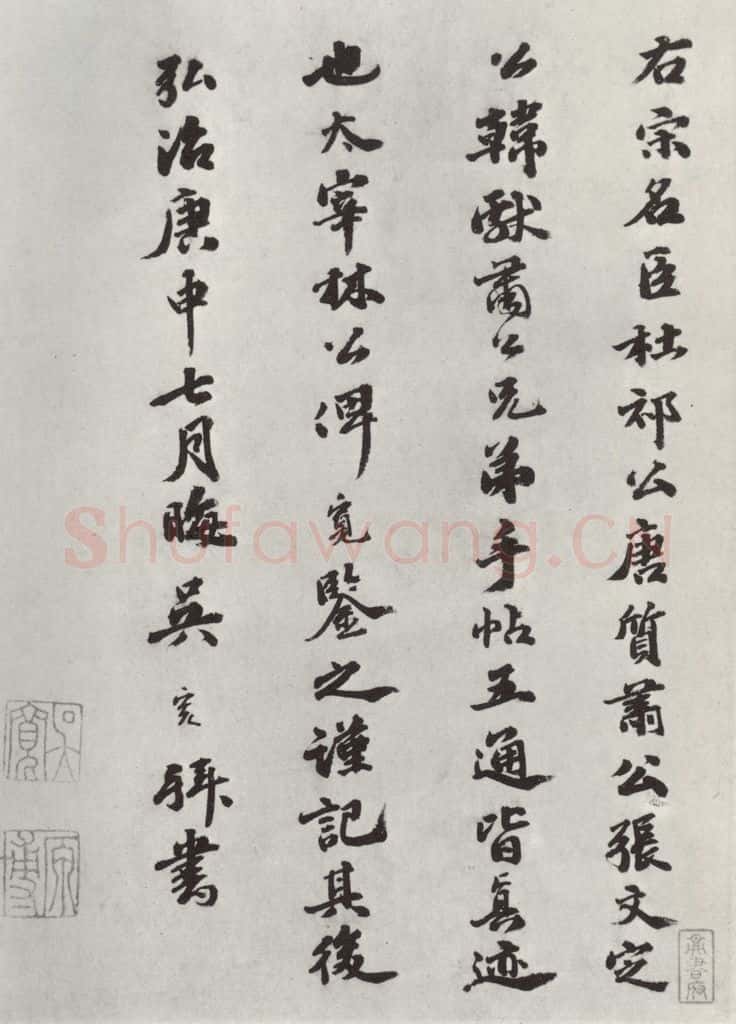 右宋名臣杜祁公唐質蕭公張文定
公韓獻蕭公兄弟手帖五通皆真迹
也太宰林公俾寬鑒之謹記其後
弘治庚申七月晦吳寬拜書
吳寬
原博
Shufawang.CN